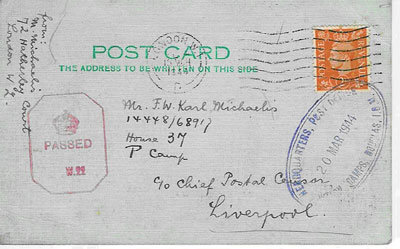 From:
M. Michaelis
72 Hatherley Court
London W.2.
POST CARD
THE ADDRESS TO BE WRITTEN ON THIS SIDE
LONDON
PASSED
W.22
Mr. F.W. Karl Michaelis
14448/68917
House 37
P Camp
c/o Chief Postal Censor
Liverpool.
HEADQUARTERS,
20 MAR 1944
CAMPS, DOUGLAS, I.O.M